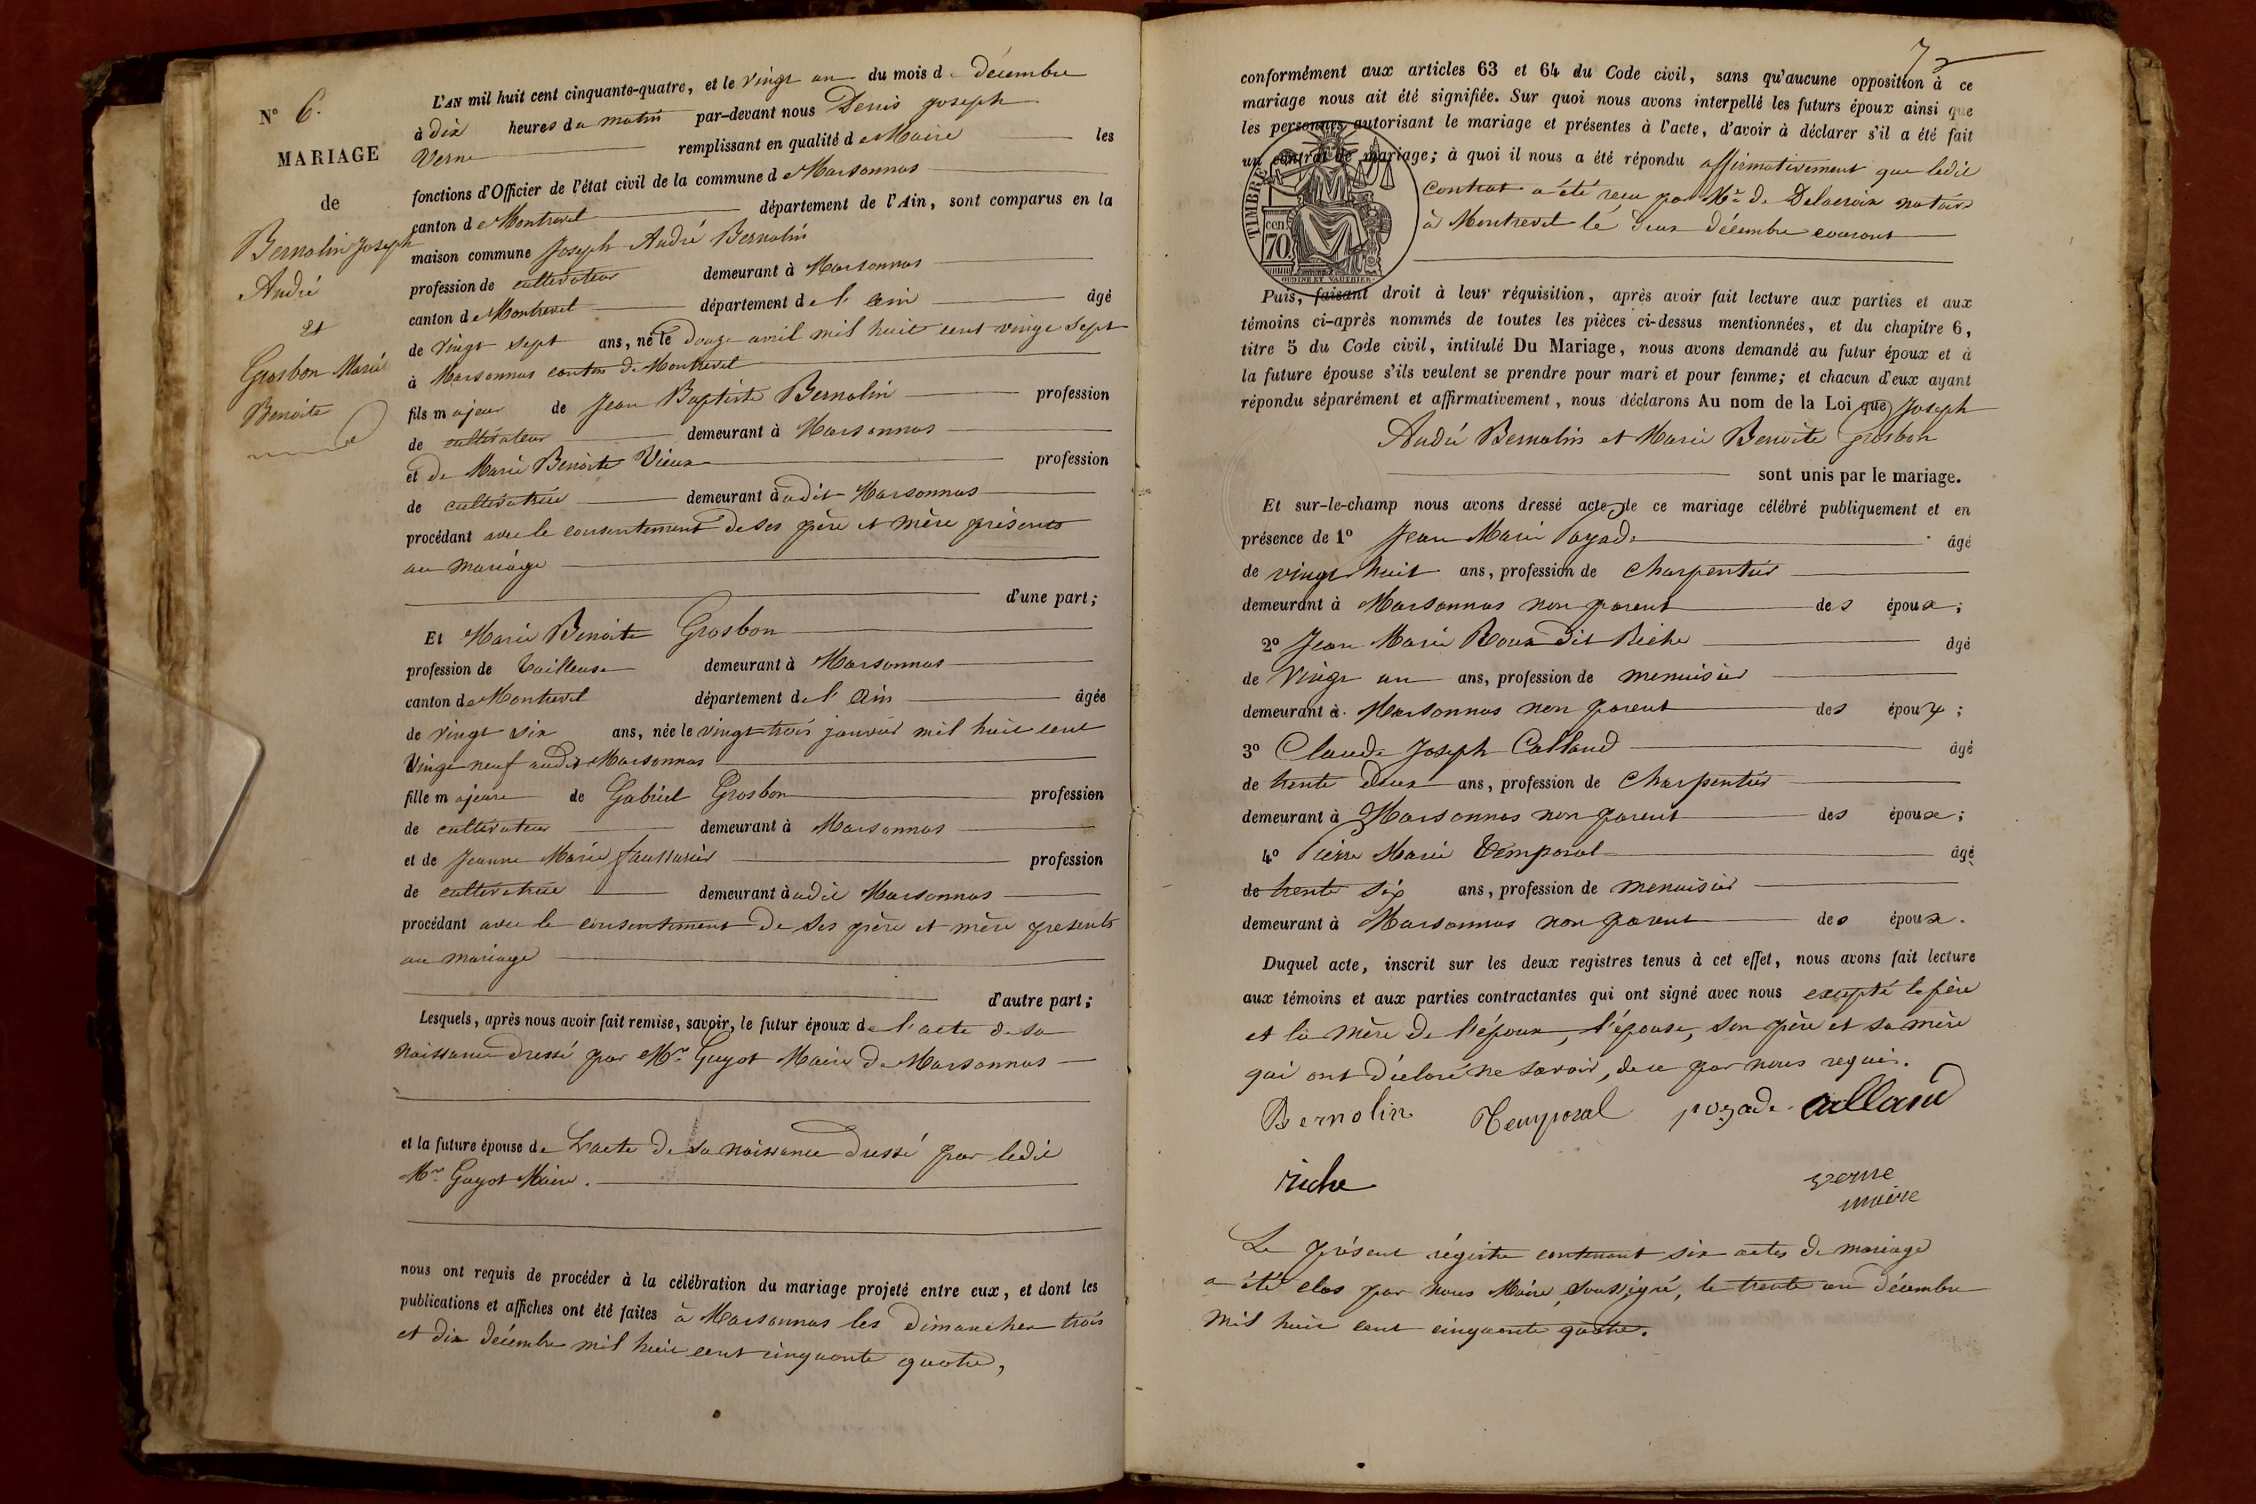 N° 6.
MARIAGE
de
Bernolin Joseph
André
et
Grosbon Marie
Benoite
L'AN mil huit cent cinquante-quatre, et le vingt un du mois d décembre
à dix heures du matin par-devant nous Denis Joseph
Verne remplissant en qualité de Maire les
fonctions d'Officier de l'état civil de la commune de Marsonnas
canton de Montrevel département de l'Ain, sont comparus en la
maison commune Joseph André Bernolin
profession de cultivateur demeurant à Marsonnas
canton de Montrevel département de l'ain âgé
de vingt sept ans, né le douze avril mil huit cent vingt sept
à Marsonnas canton de Montrevel
fils majeur de Jean Baptiste Bernolin profession
de cultivateur demeurant à Marsonnas
et de Marie Benoite Vieux profession
de cultivatrice demeurant audit Marsonnas
procédant avec le consentement de ses père et mère présents
au mariage
d'une part;
Et Marie Benoite Grosbon
profession de tailleuse demeurant à Marsonnas
canton de Montrevel département de l'ain âgée
de vingt six ans, née le vingt trois janvier mil huit cent
vingt neuf audit Marsonnas
fille majeure de Gabriel Grosbon profession
de cultivateur demeurant à Marsonnas
et de Jeanne Marie faussurier profession
de cultivatrice demeurant audit Marsonnas
procédant avec le consentement de ses père et mère présents
au mariage
d'autre part;
Lesquels, après nous avoir fait remise, savoir, le futur époux de l'acte de sa
naissance dressé par Mr. Guyot Maire de Marsonnas
et la future épouse de l'acte de sa naissance dressé par ledit
Mr. Guyot Maire.
nous ont requis de procéder à la célébration du mariage projeté entre eux, et dont les
publications et affiches ont été faites à Marsonnas les dimanches trois
et dix décembre mil huit cent cinquante quatre,
7
conformément aux articles 63 et 64 du Code civil, sans qu'aucune opposition à ce
mariage nous ait été signifiée. Sur quoi nous avons interpellé les futurs époux ainsi que
les personnes autorisant le mariage et présentes à l'acte, d'avoir à déclarer s'il a été fait
un contrat de mariage; à quoi il nous a été répondu affirmativement que ledit
contrat a été reçu par Me. de Delacroix notaire
à Montrevel le deux décembre courant
TIMBRE
cen.
70.
OUDINE ET VAUTHIER
Puis, faisant droit à leur réquisition, après avoir fait lecture aux parties et aux
témoins ci-après nommés de toutes les pièces ci-dessus mentionnées, et du chapitre 6,
titre 5 du Code civil, intitulé Du Mariage, nous avons demandé au futur époux et à
la future épouse s'ils veulent se prendre pour mari et pour femme; et chacun d'eux ayant
répondu séparément et affirmativement, nous déclarons Au nom de la Loi que Joseph
André Bernolin et Marie Benoite Grosbon
sont unis par le mariage.
Et sur-le-champ nous avons dressé acte de ce mariage célébré publiquement et en
présence de 1° Jean Marie Poyade âgé
de vingt huit ans, profession de charpentier
demeurant à Marsonnas non parent des époux;
2° Jean Marie Roux dit Riche âgé
de vingt un ans, profession de menuisier
demeurant à Marsonnas non parent des époux;
3° Claude Joseph Calland âgé
de trente deux ans, profession de charpentier
demeurant à Marsonnas non parent des époux;
4° Pierre Marie Temporal âgé
de trente six ans, profession de menuisier
demeurant à Marsonnas non parent des époux.
Duquel acte, inscrit sur les deux registres tenus à cet effet, nous avons fait lecture
aux témoins et aux parties contractantes qui ont signé avec nous excepté le père
et la mère de l'époux, l'épouse, son père et sa mère
qui ont déclaré ne savoir, de ce par nous requis.
Bernolin Temporal poyade calland
riche verne
maire
Le présent régistre contenant six actes de mariage
a été clos par nous Maire, soussigné, le trente un décembre
mil huit cent cinquante quatre.